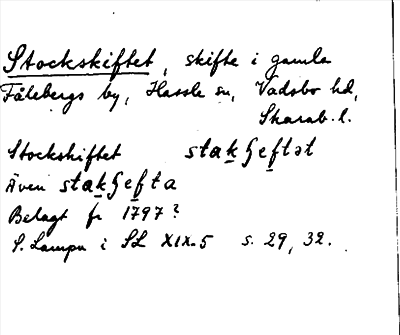 Stockskiftet, skifte i gamla
Fålebergs by, Hassle sn, Vadsbo hd,
Skarab. l.
Stockskiftet stakʃeftət
Även stakʃefta
Belagt fr 1797?
S. Lampa i SL XIX.5 s. 29, 32.